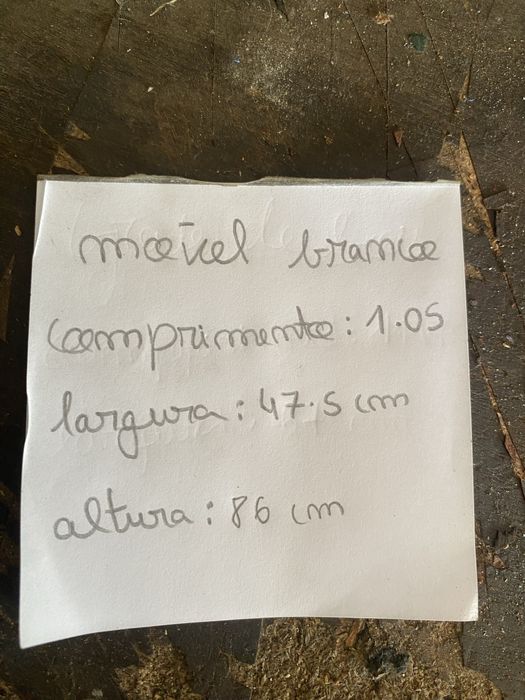 móvel branco
comprimento: 1.05
largura: 47.5 cm
altura: 86 cm